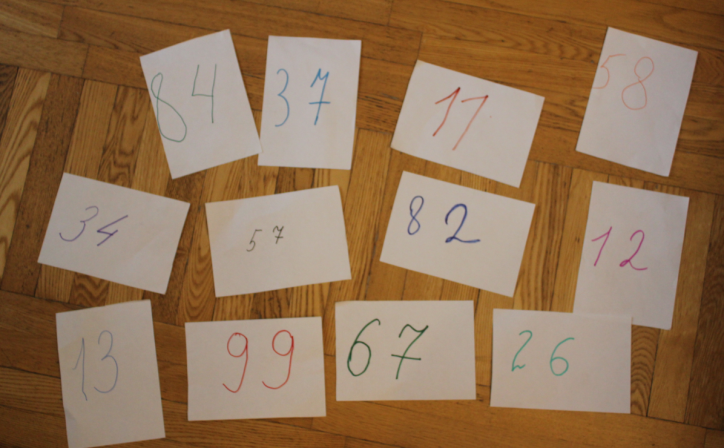 84
37
11
58
34
57
82
12
13
99
67
26